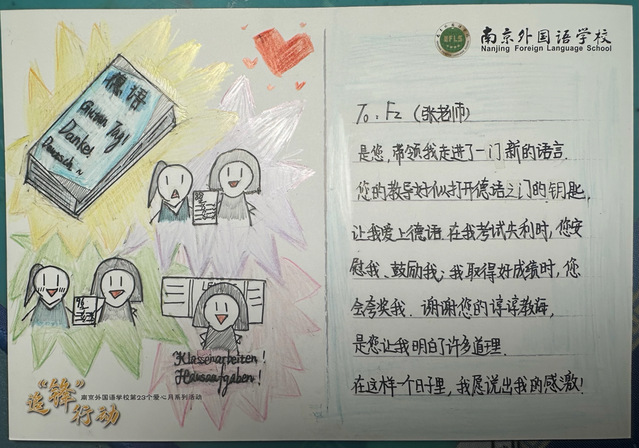 德语
Guten Tag!
Danke!
Deutsch~
Klassenarbeiten!
Hausaufgaben!
造“锋”行动
南京外国语学校第23个爱心月系列活动
NFLS
南京外国语学校
Nanjing Foreign Language School
To: Fz (张老师)
是您,带领我走进了一门新的语言.
您的教导好似打开德语之门的钥匙,
让我爱上德语.在我考试失利时,您安
慰我、鼓励我;我取得好成绩时,您
会夸奖我.谢谢您的谆谆教诲,
是您让我明白了许多道理.
在这样一个日子里,我愿说出我的感激!